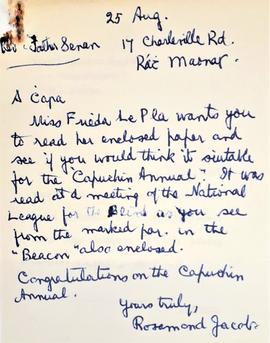 25 Aug.
Rev. Father Senan 17 Charleville Rd.
Ráṫ Maonaſ.
A Ċara
Miss Frieda Le Pla wants you
to read her enclosed paper and
see if you would think it suitable
for the "Capuchin Annual". It was
read at a meeting of the National
League for the Blind as you see
from the marked par. in the
"Beacon" also enclosed.
Congratulations on the Capuchin
Annual.
Yours truly,
Rosamond Jacob